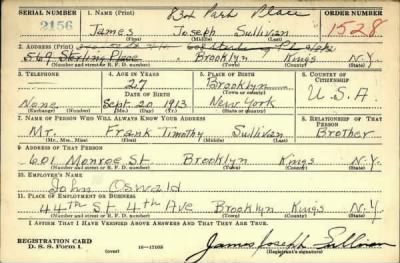 SERIAL NUMBER 1. NAME (Print) ORDER NUMBER
2156 James Joseph Sullivan 1528
(First) (Middle) (Last)
2. ADDRESS (Print)
569 Sterling Place Brooklyn Kings N.Y.
(Number and street or R. F. D. number) (Town) (County) (State)
3. TELEPHONE 4. AGE IN YEARS 5. PLACE OF BIRTH 6. COUNTRY OF CITIZENSHIP
27 Brooklyn
DATE OF BIRTH (Town or county) U.S.A
None Sept. 20 1913 New York
(Exchange) (Number) (Mo.) (Day) (Yr.) (State or country)
7. NAME OF PERSON WHO WILL ALWAYS KNOW YOUR ADDRESS 8. RELATIONSHIP OF THAT PERSON
Mr. Frank Timothy Sullivan Brother
(Mr., Mrs., Miss) (First) (Middle) (Last)
9. ADDRESS OF THAT PERSON
601 Monroe St. Brooklyn Kings N.Y.
(Number and street or R. F. D. number) (Town) (County) (State)
10. EMPLOYER'S NAME
John Oswald
11. PLACE OF EMPLOYMENT OR BUSINESS
44th St. 4th Ave Brooklyn Kings N.Y.
(Number and street or R. F. D. number) (Town) (County) (State)
I AFFIRM THAT I HAVE VERIFIED ABOVE ANSWERS AND THAT THEY ARE TRUE.
REGISTRATION CARD
D. S. S. Form 1. 16-17105 James Joseph Sullivan
(Registrant's signature)